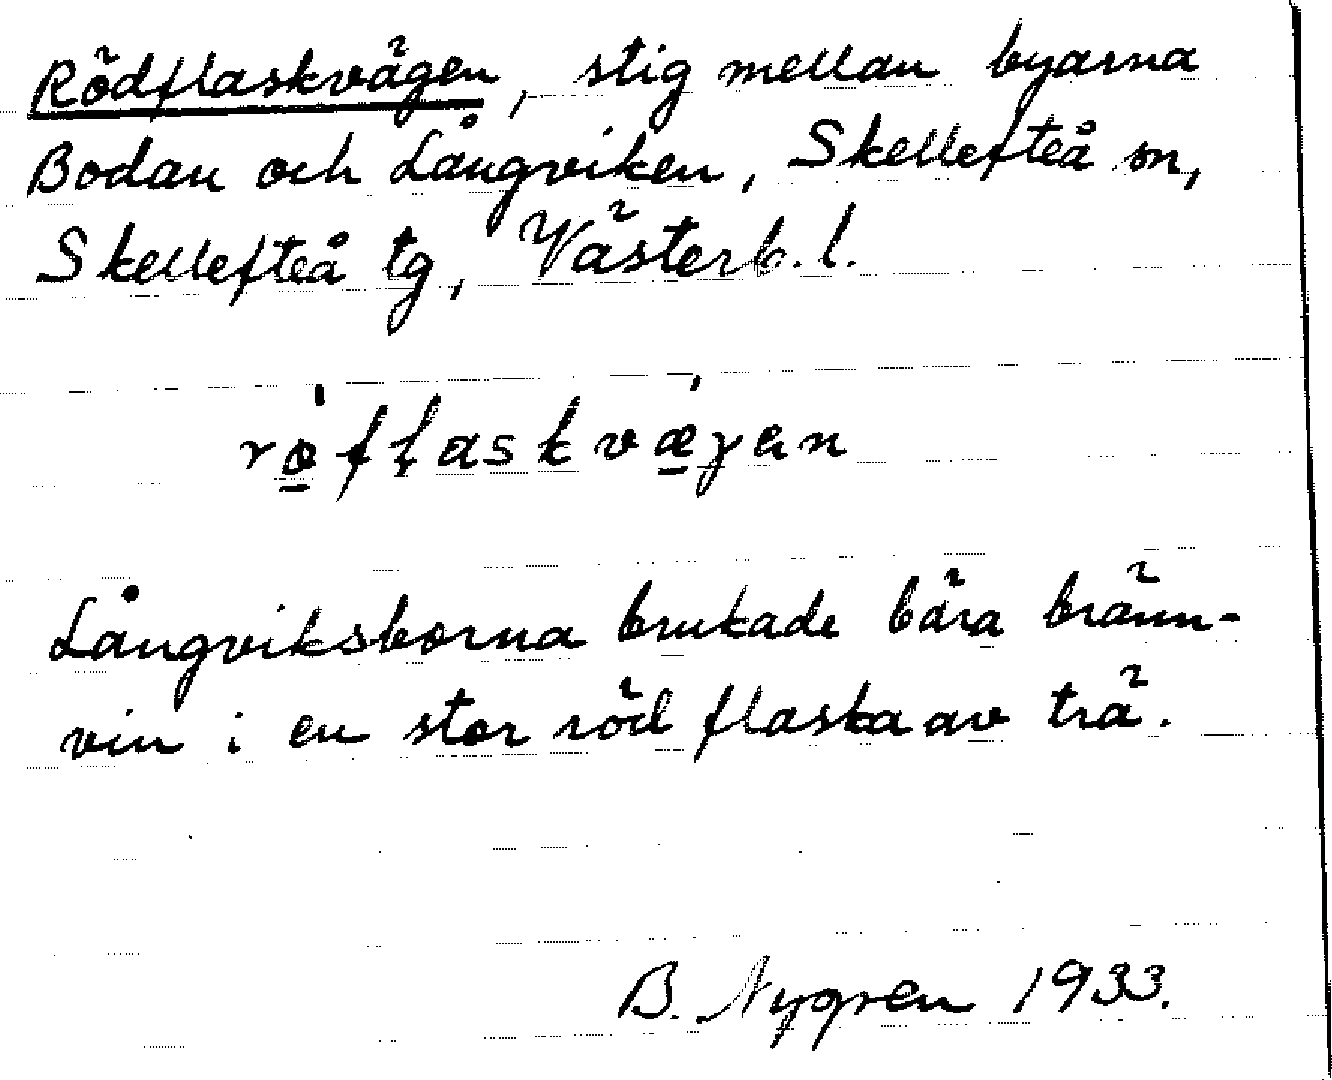 Rödflaskvägen, stig mellan byarna
Bodan och Långviken, Skellefteå sn,
Skellefteå tg, Västerb. l.
rǿ̱fļaskvǽ̱gen
Långviksborna brukade bära bränn-
vin i en stor röd flaska av trä.
B. Nygren 1933.